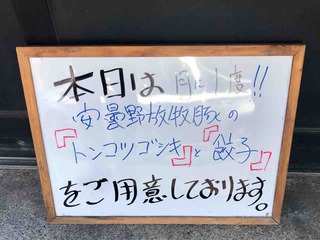 本日は月に1度!!
安曇野放牧豚の
『トンコツゴシキ』と『餃子』
をご用意しております。